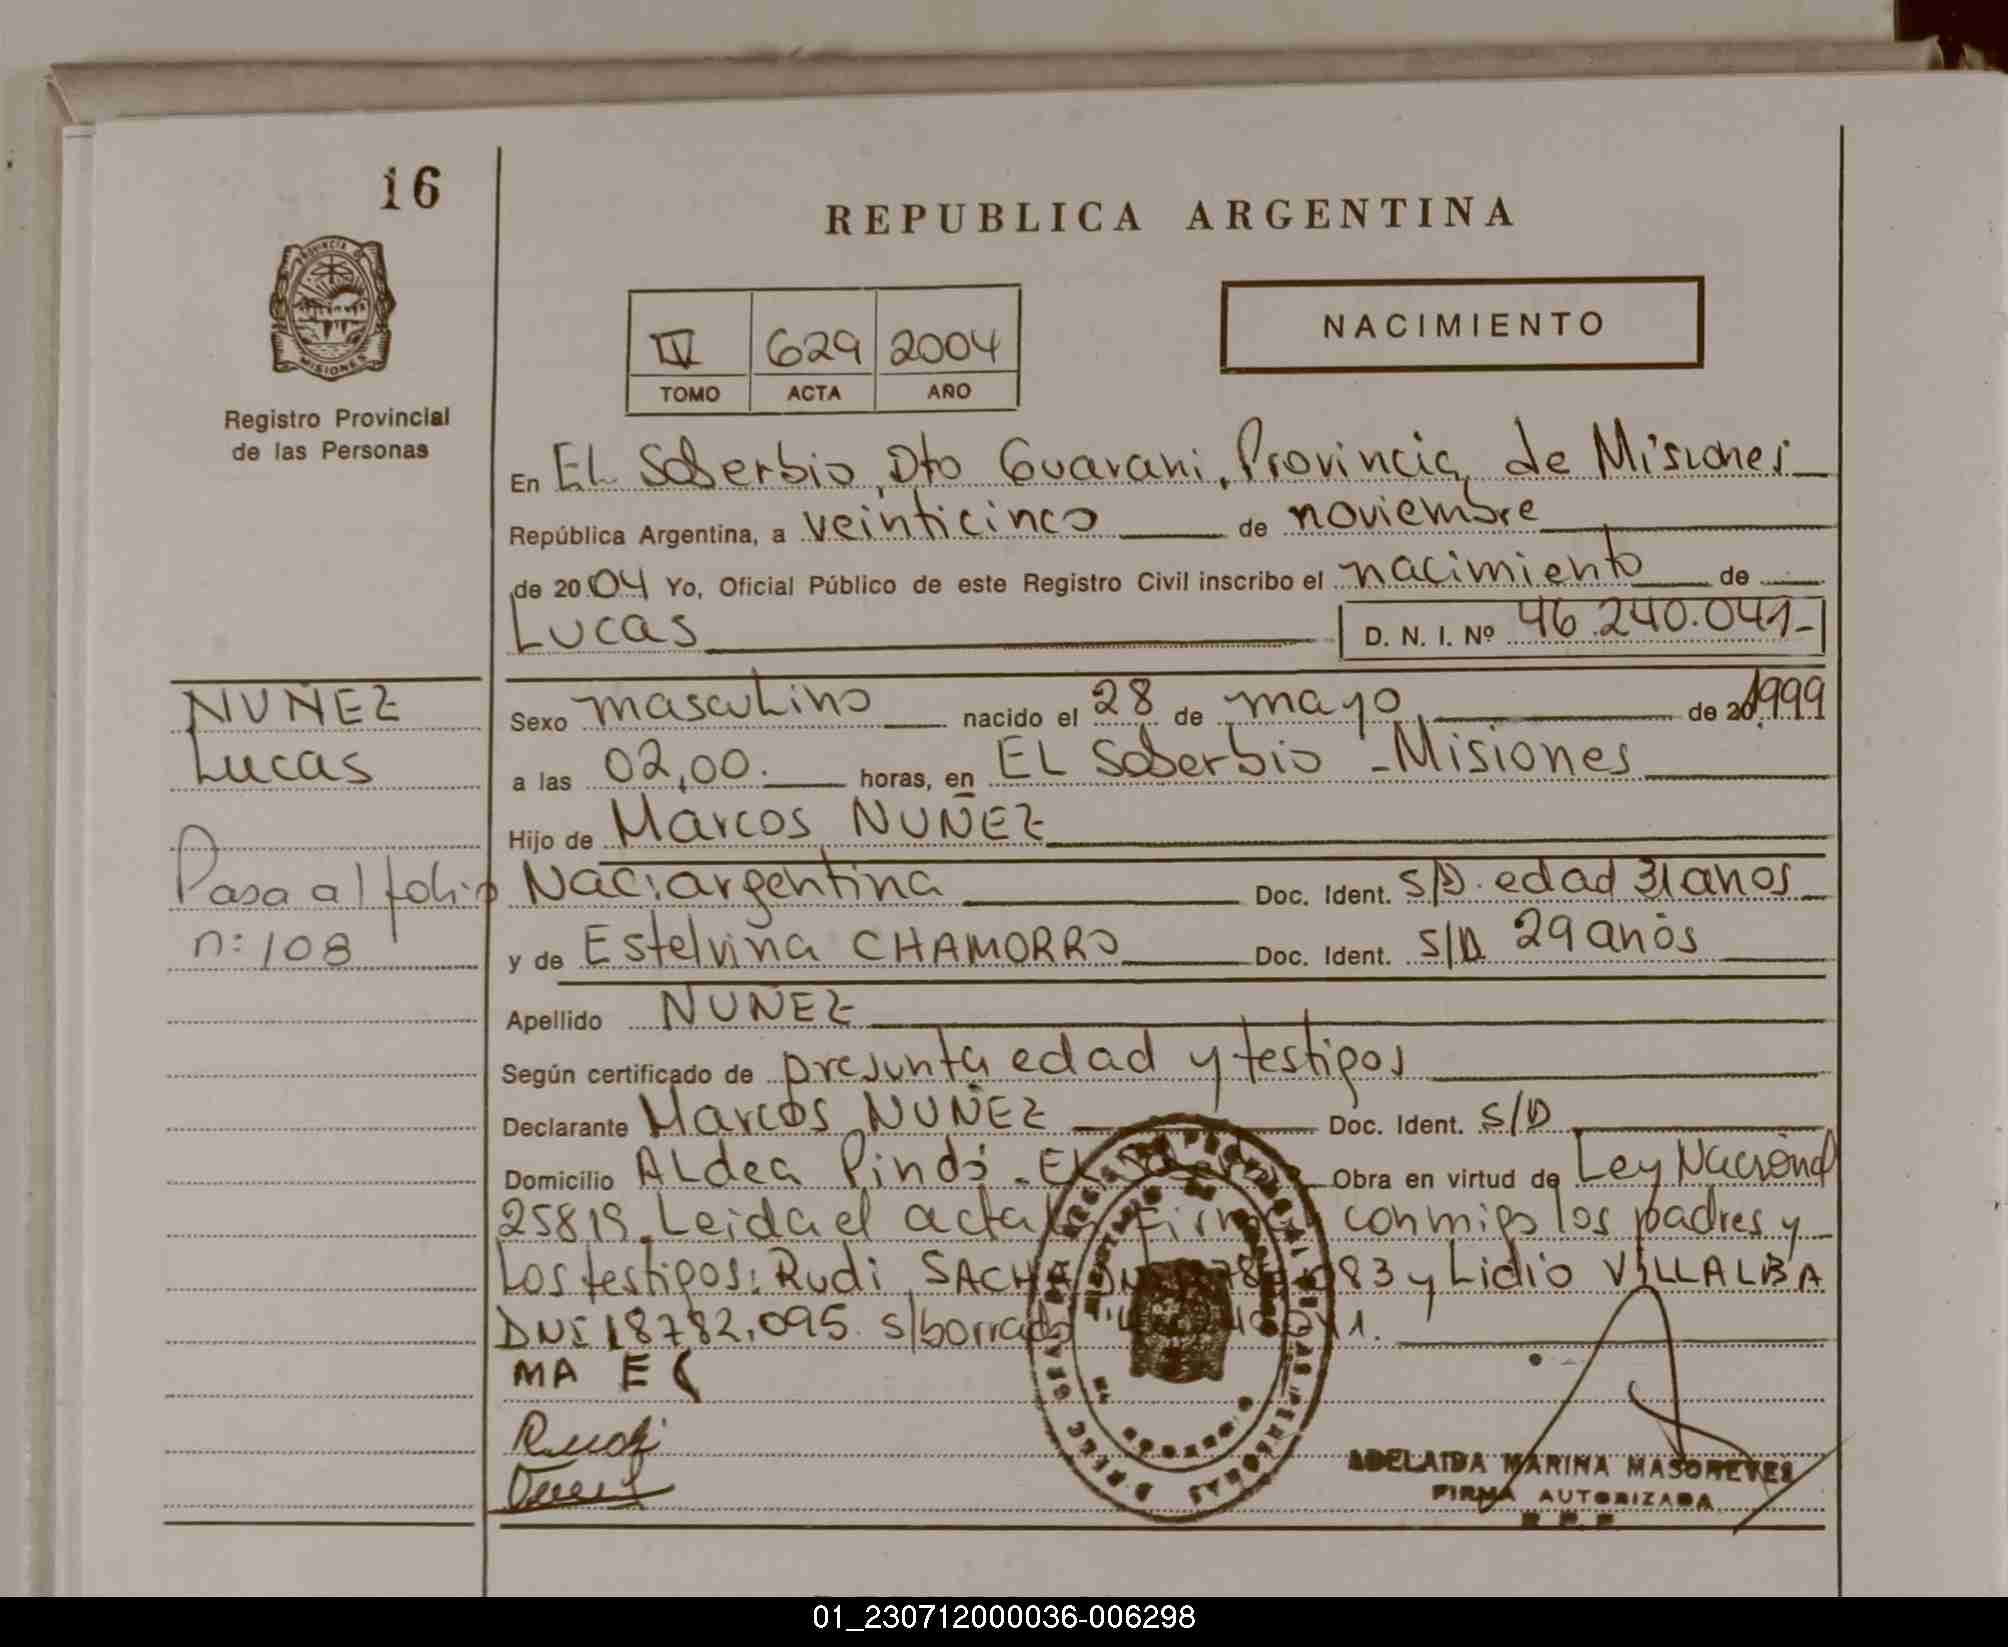 16
REPUBLICA ARGENTINA
PROVINCIA DE
MISIONES
Registro Provincial
de las Personas
IV 629 2004
TOMO ACTA AÑO
NACIMIENTO
En EL Soberbio, Dto Guarani, Provincia de Misiones
República Argentina, a veinticinco de noviembre
de 2004 Yo, Oficial Público de este Registro Civil inscribo el nacimiento de
Lucas D. N. I. Nº 46.240.041-
NUÑEZ
Lucas
Pasa al folio
n: 108
Sexo masculino nacido el 28 de mayo de 20 1999
a las 02,00. horas, en EL Soberbio - Misiones
Hijo de Marcos NUÑEZ
Nac: argentina Doc. Ident. S/D. edad 31 anos
y de Estelvina CHAMORRO Doc. Ident. S/D 29 anos
Apellido NUÑEZ
Según certificado de presunta edad y testigos
Declarante Marcos NUÑEZ Doc. Ident. S/D
Domicilio ALdea Pindó - EL Obra en virtud de Ley Nacional
25819. Leida el acta conmigo los padres y
Los testigos: Rudi SACHA 083 y Lidio VILLALBA
DNI 18782.095. s/borrado
MA E
Rudi
ADELAIDA MARINA
FIRMA AUTORIZADA
01_230712000036-006298